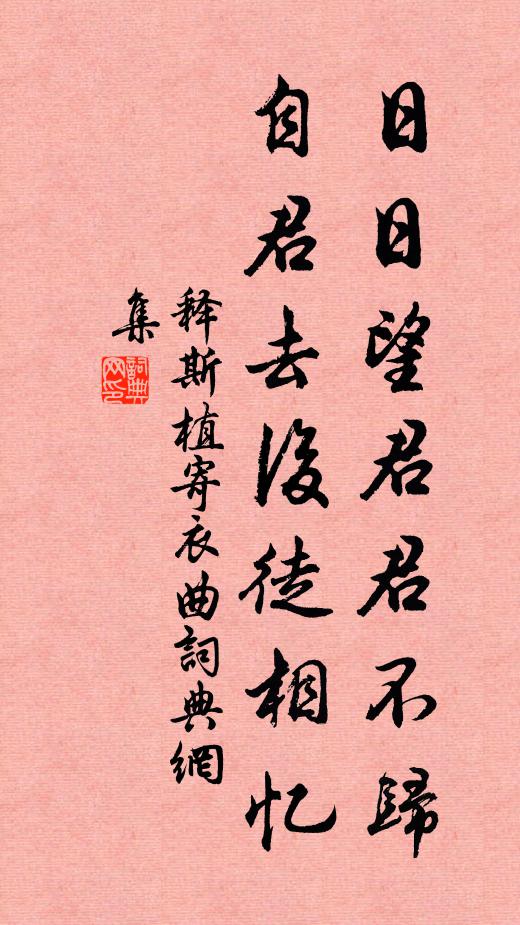 日日望君君不歸
自君去後徒相忆
释斯植寄衣曲詞典網
集
詞典
网印